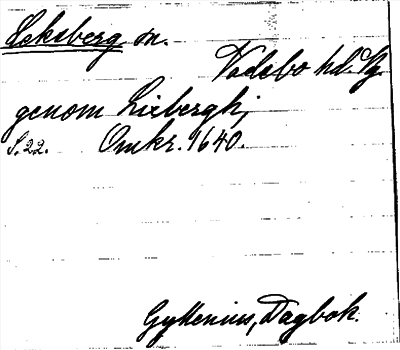 Leksberg sn.
Vadsbo hd. Vg.
genom Lieberghj
S. 22. Omkr. 1640.
Gyllenius, Dagbok.